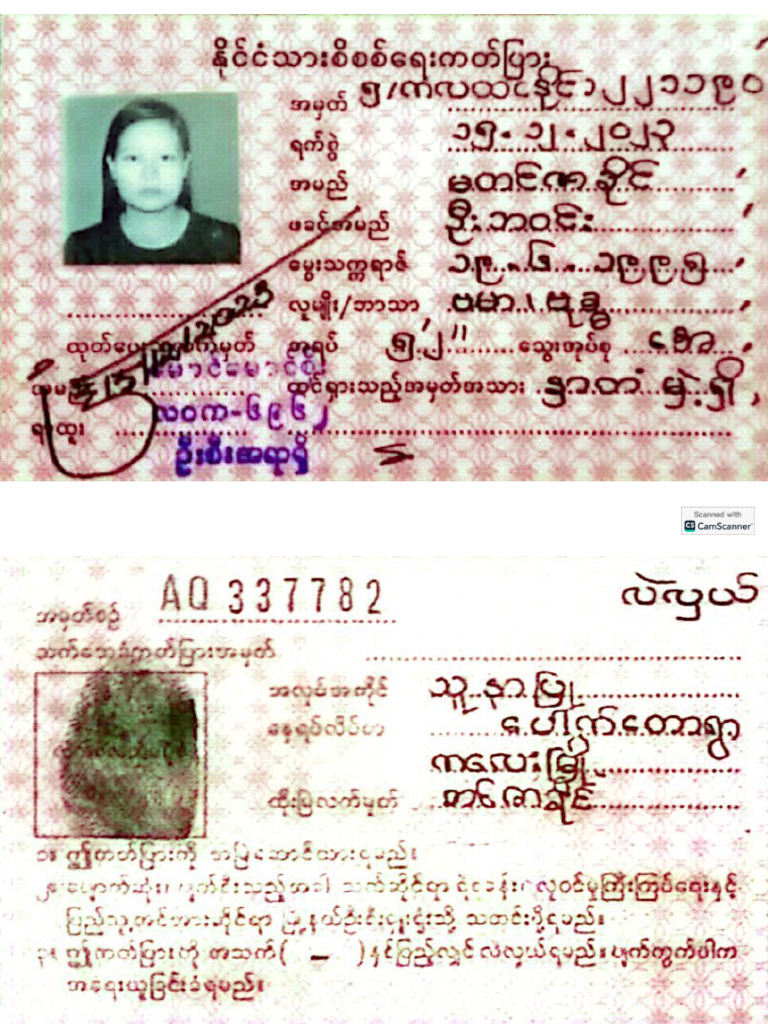 နိုင်ငံသားစိစစ်ရေးကတ်ပြား
အမှတ် ၅/ကလထ(နိုင်)၂၂၁၁၉၀
ရက်စွဲ ၁၅.၁၂.၂၀၂၃
အမည် မတင်ဇာခိုင်
ဖခင်အမည် ဦးဘဝင်း
မွေးသက္ကရာဇ် ၁၉.၆.၁၉၉၅
လူမျိုး/ဘာသာ ဗမာ၊ဗုဒ္ဓ
အရပ် ၅'၂" သွေးအုပ်စု အော
ထင်ရှားသည့်အမှတ်အသား မှဲ့ရှိ
ထုတ်ပေး
15/12/2023
မောင်မောင်စိုး
လဝက-၆၉၆၂
ဦးစီးအရာရှိ
Scanned with
CS CamScanner
အမှတ်စဉ် AQ 337782 လဲလှယ်
ကတ်ပြားအမှတ်
အလုပ်အကိုင် သူနာပြု
နေရပ်လိပ်စာ ပေါက်တောရွာ
ကလေးမြို့
ထိုးမြဲလက်မှတ် တင်ဇာခိုင်
၁။ ဤကတ်ပြားကို အမြဲဆောင်ထားရမည်။
၂။ ပျောက်ဆုံး၊ ပျက်စီးသည့်အခါ သက်ဆိုင်ရာ ရဲစခန်း၊ လူဝင်မှုကြီးကြပ်ရေးနှင့်
ပြည်သူ့အင်အားဆိုင်ရာ မြို့နယ်ဦးစီးမှူးရုံးသို့ သတင်းပို့ရမည်။
၃။ ဤကတ်ပြားကို အသက်( – )နှင့်ပြည့်လျှင် လဲလှယ်ရမည်။ ပျက်ကွက်ပါက
အရေးယူခြင်းခံရမည်။